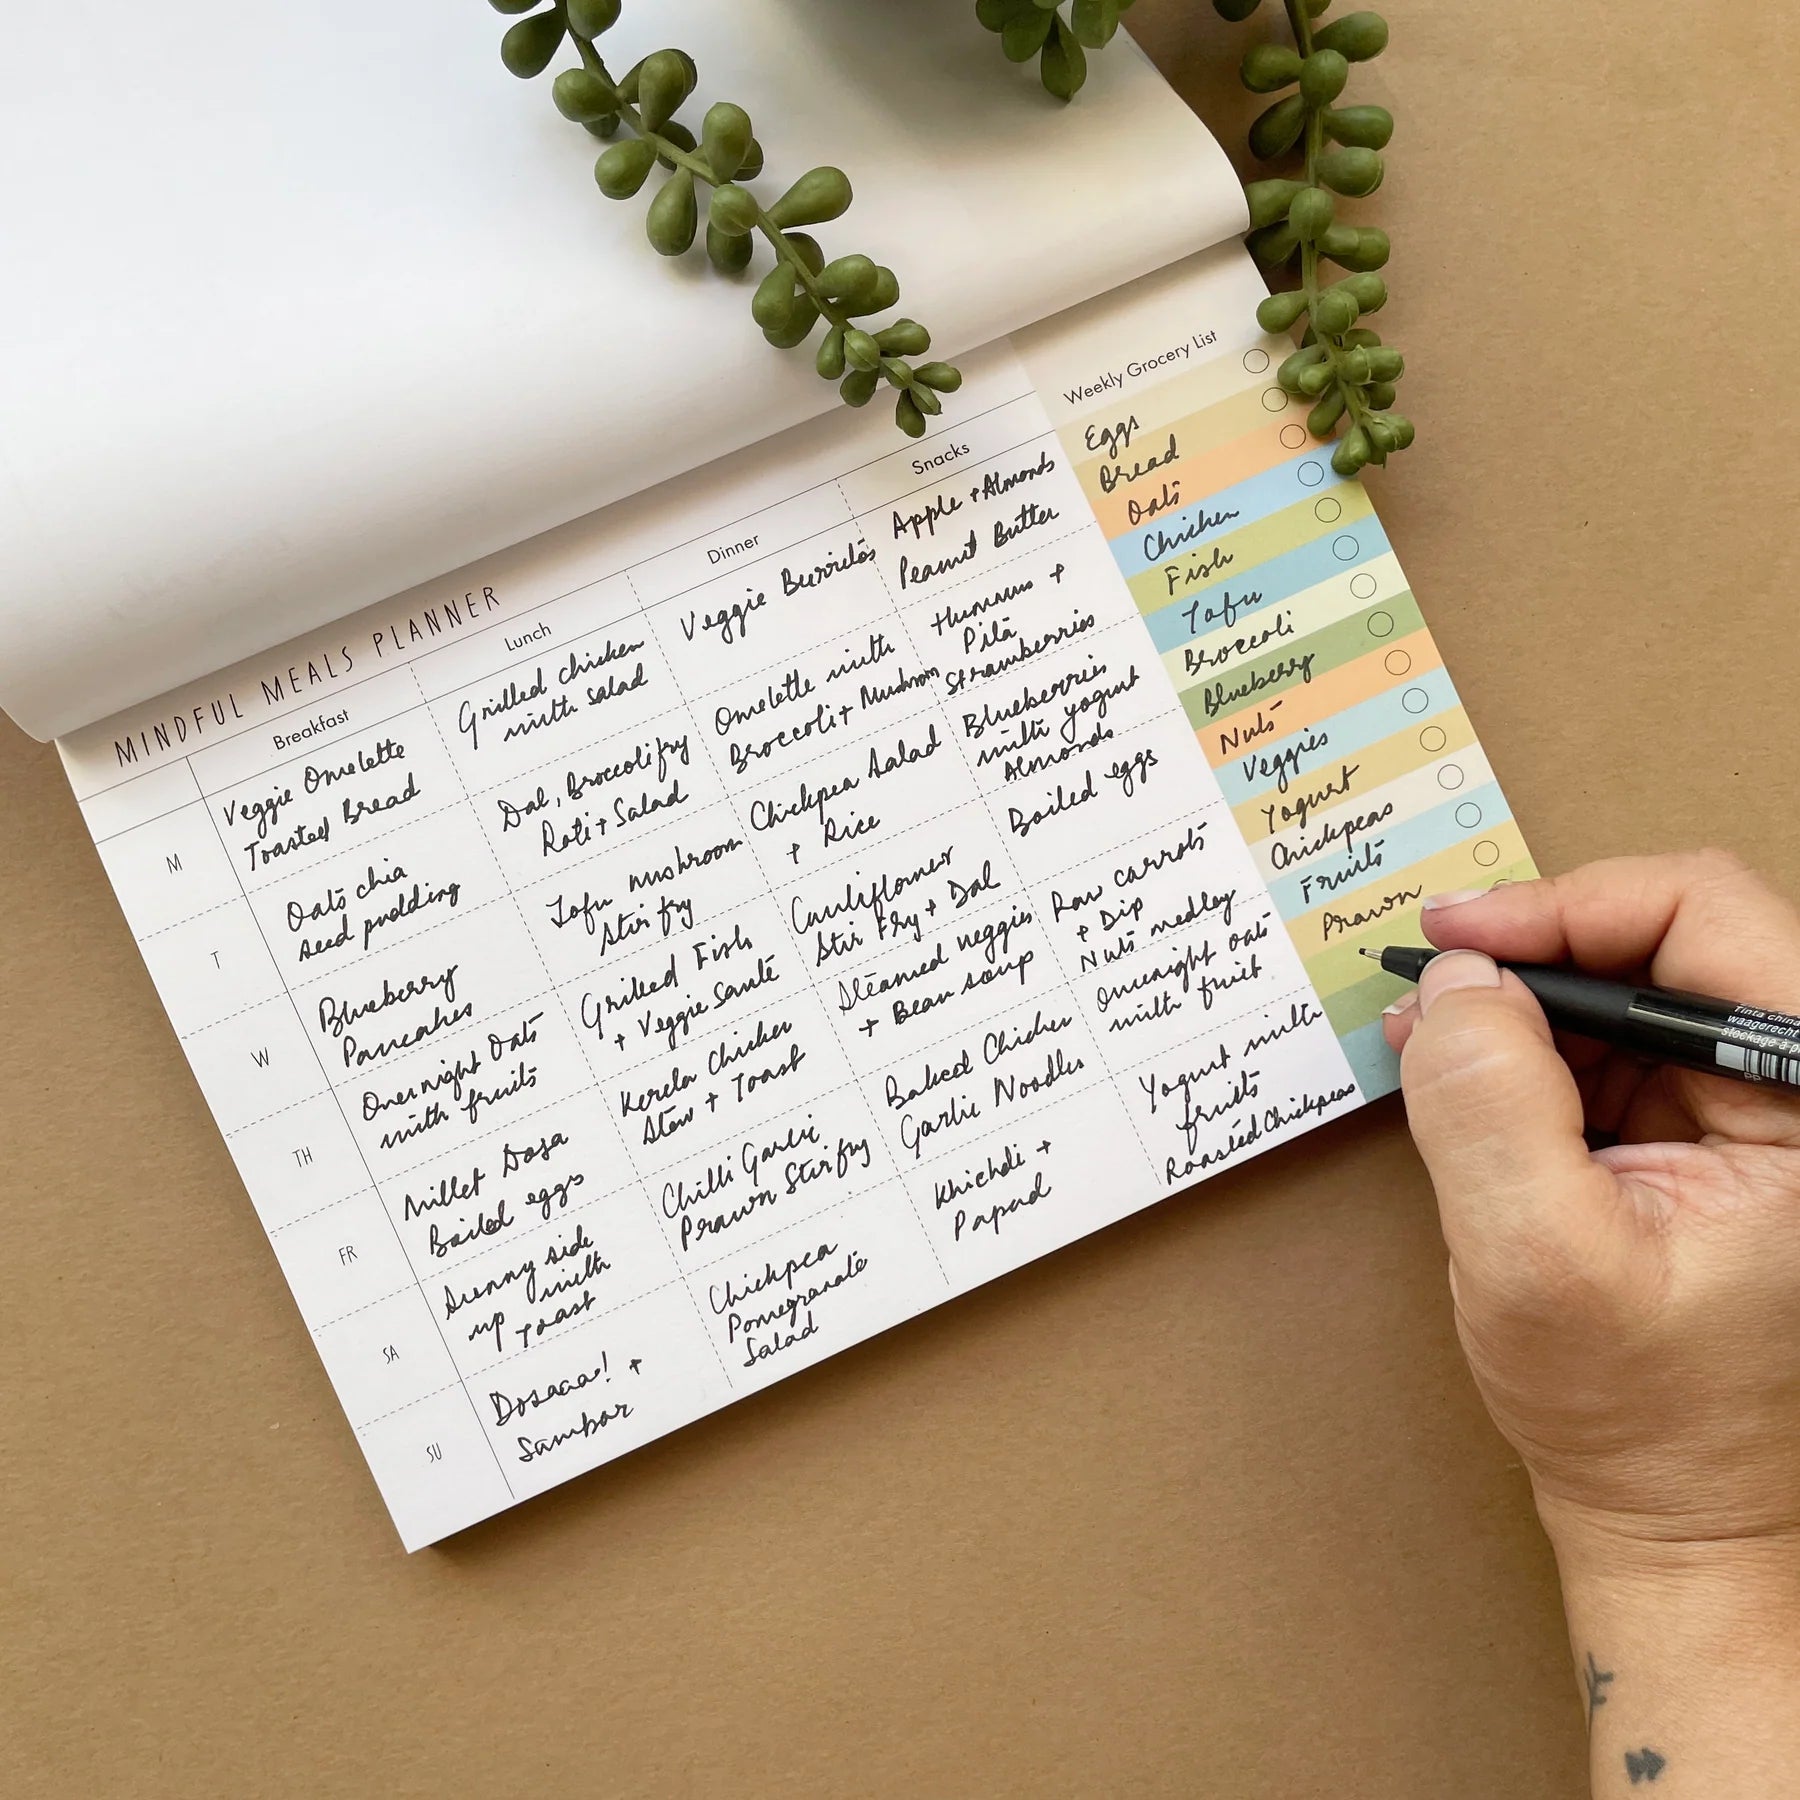 MINDFUL MEALS PLANNER
Breakfast
Lunch
Dinner
Snacks
M
Veggie Omelette
Toasted Bread
Grilled chicken
with salad
Veggie Burritos
Apple + Almonds
Peanut Butter
T
Oats chia
seed pudding
Dal, Broccoli fry
Roti + Salad
Omelette with
Broccoli + Mushroom
Hummus +
Pita
Strawberries
W
Blueberry
Pancakes
Tofu mushroom
Stir fry
Chickpea Salad
+ Rice
Blueberries
with yogurt
Almonds
TH
Overnight Oats
with fruits
Grilled Fish
+ Veggie Sauté
Cauliflower
Stir Fry + Dal
Boiled eggs
FR
Millet Dosa
Boiled eggs
Kerela Chicken
Stew + Toast
Steamed veggies
+ Bean soup
Raw carrots
+ Dip
Nuts medley
SA
Sunny side
up with
toast
Chilli Garlic
Prawn Stir fry
Baked Chicken
Garlic Noodles
Overnight oats
with fruit
SU
Dosaaa! +
Sambar
Chickpea
Pomegranate
Salad
Khichdi +
Papad
Yogurt with
fruits
Roasted Chickpeas
Weekly Grocery List
Eggs
Bread
Oats
Chicken
Fish
Tofu
Broccoli
Blueberry
Nuts
Veggies
Yogurt
Chickpeas
Fruits
Prawn
Tinta china
waagerecht
stockage à